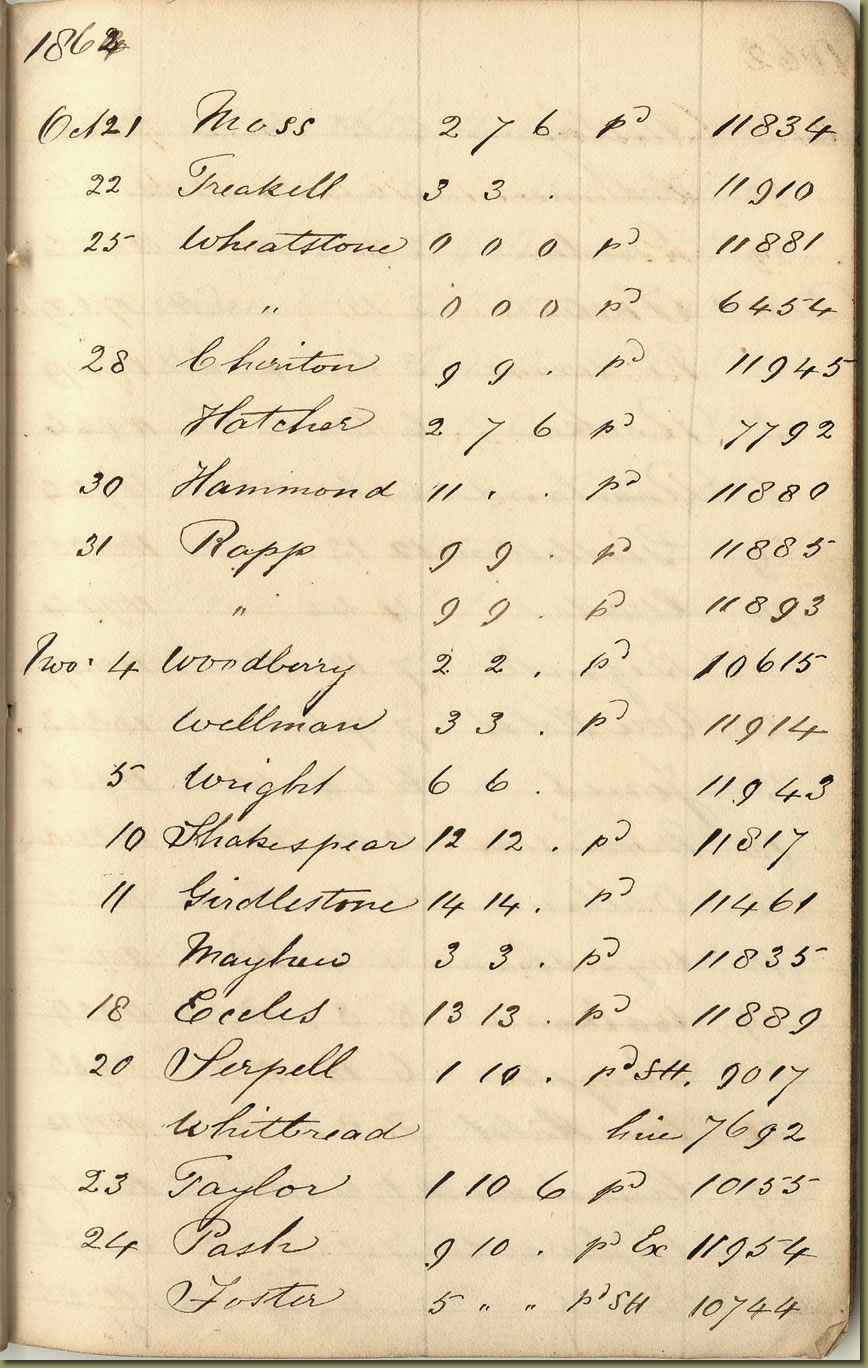 1862
Oct 21 Moss 2 7 6 pd 11834
22 Treakell 3 3 . 11910
25 Wheatstone 0 0 0 pd 11881
" 0 0 0 pd 6454
28 Cheriton 9 9 . pd 11945
Hatcher 2 7 6 pd 7792
30 Hammond 11 . . pd 11880
31 Rapp 9 9 . pd 11885
" 9 9 . pd 11893
Nov 4 Woodberry 2 2 . pd 10615
Wellman 3 3 . pd 11914
5 Wright 6 6 . 11943
10 Shakespear 12 12 . pd 11817
11 Girdlestone 14 14 . pd 11461
Mayhew 3 3 . pd 11835
18 Eccles 13 13 . pd 11889
20 Serpell 1 10 . pd SH. 9017
Whitbread hire 7692
23 Taylor 1 10 6 pd 10155
24 Pash 9 10 . pd Ex 11954
Foster 5 " " pd SH 10744